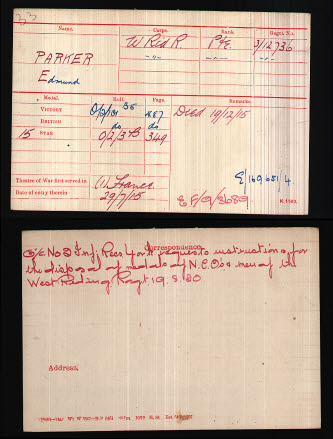 33
Name. Corps. Rank. Regtl. No.
PARKER W Rid R. Pte 3/12736
Edmund -"- -"-
Medal. Roll. Page. Remarks.
VICTORY 887 Died 19/12/15
BRITISH do do
15 STAR 0/2/3B 349
E/169651/4
Theatre of War first served in (1) France
Date of entry therein 29/7/15
K.1380.
Correspondence.
O i/c No 2 Inf Rec York requests instructions for
the disposal of medals of N.C.Os & men of the
West Riding Regt 19.8.20
Address.